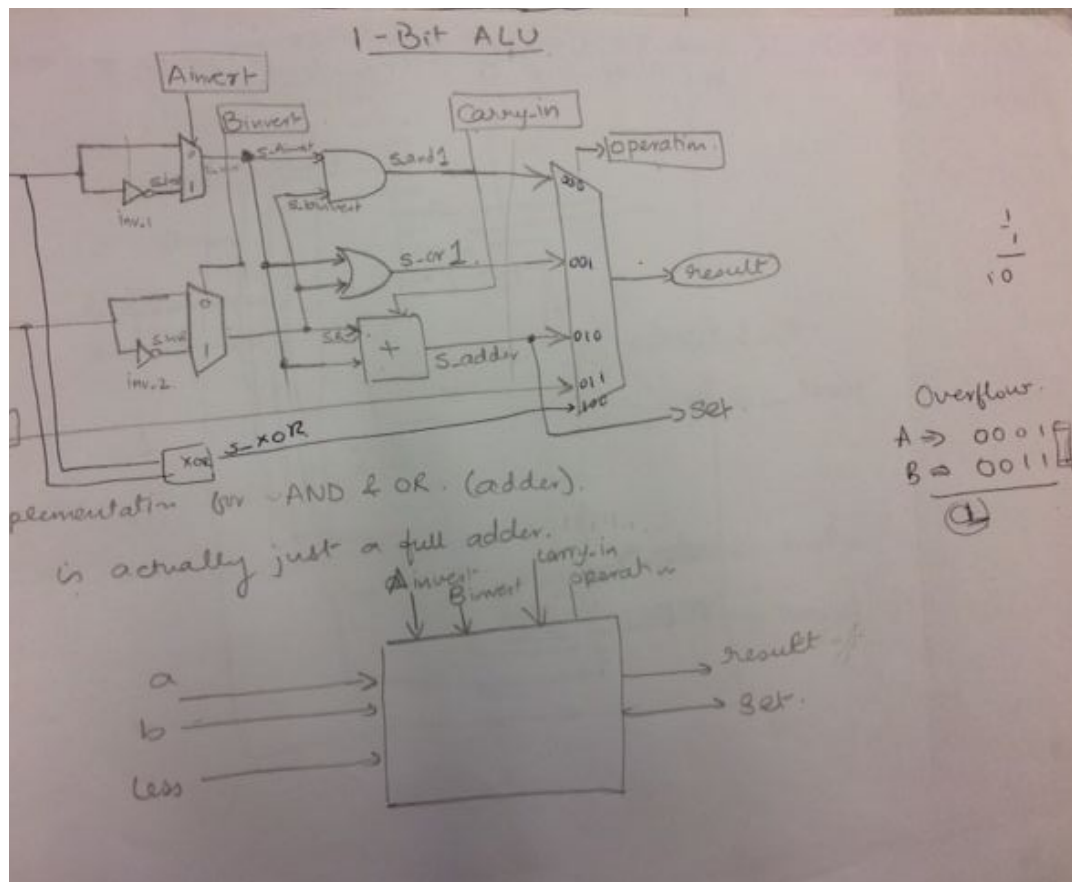 1-Bit ALU
Ainvert
Binvert
Carry-in
operation
0
1
inv-1
s-Ainvert
s-binvert
s-and1
000
s-or1
001
result
0
1
inv-2
+
s-adder
010
011
100
set
XOR
s-XOR
plementation for AND & OR. (adder).
is actually just a full adder.
Ainvert
Binvert
carry-in
operation
a
b
Less
result
set.
1
1
10
Overflow.
A ⇒ 0001
B ⇒ 0011